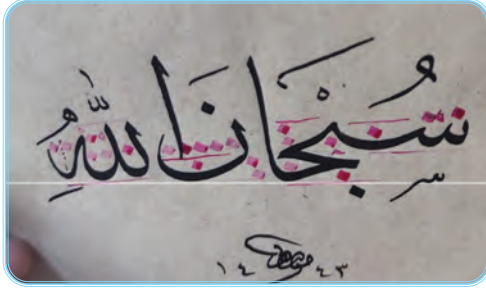 سُبْحَانَ اللّٰهِ
١٤٤٣